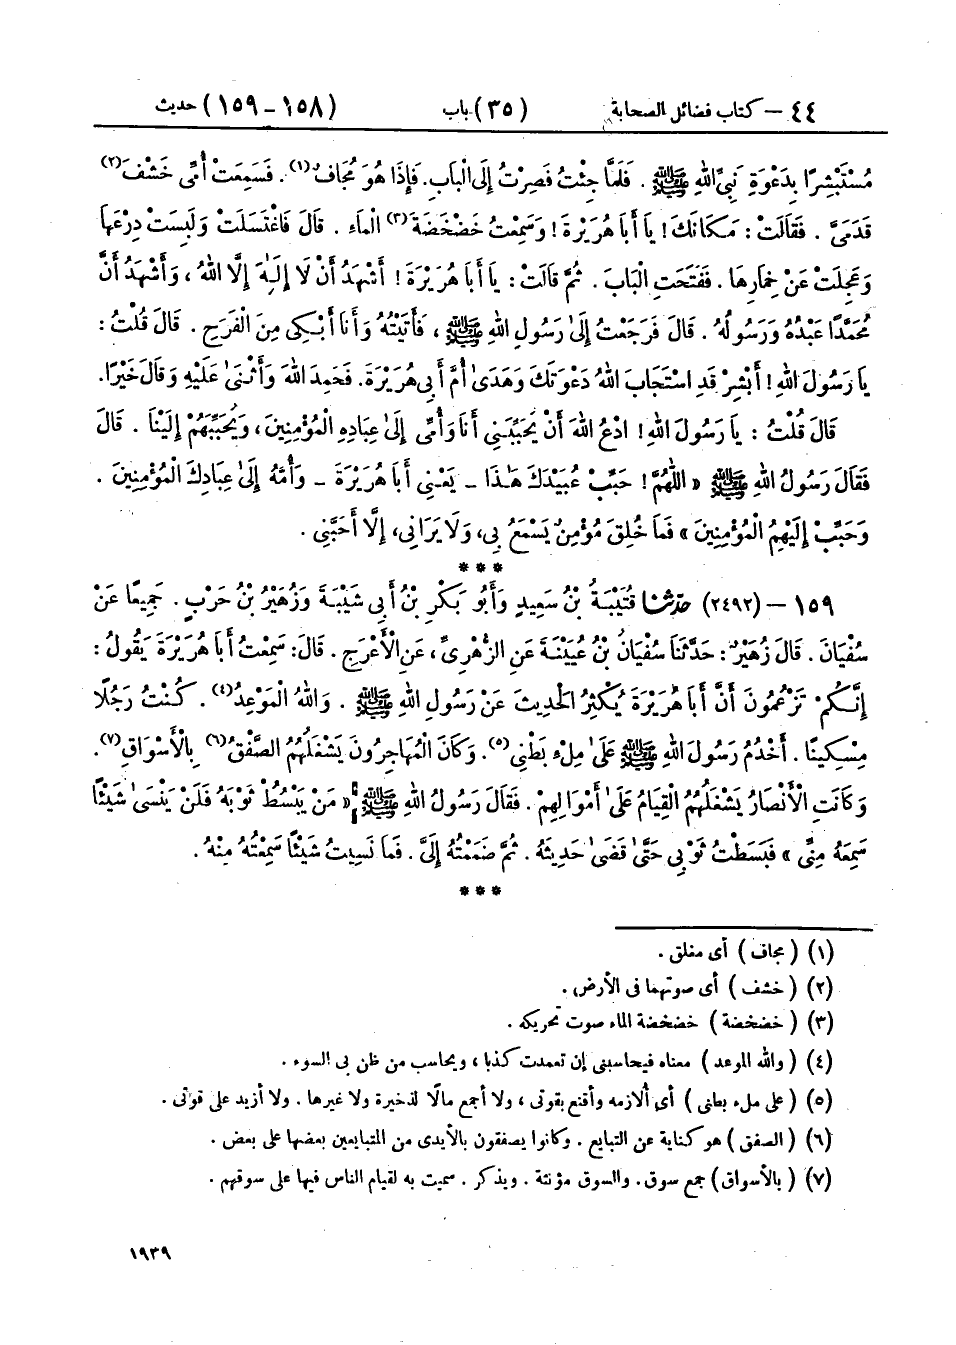 ٤٤ – كتاب فضائل الصحابة (٣٥) باب (١٥٨ – ١٥٩) حديث
مُسْتَبْشِرًا بِدَعْوَةِ نَبِيِّ اللهِ ﷺ . فَلَمَّا جِئْتُ فَصِرْتُ إِلَى الْبَابِ. فَإِذَا هُوَ مُجَافٌ(١) . فَسَمِعَتْ أُمِّي خَشْفَ(٢)
قَدَمَيَّ . فَقَالَتْ: مَكَانَكَ! يَا أَبَا هُرَيْرَةَ! وَسَمِعْتُ خَضْخَضَةَ(٣) الْمَاءِ . قَالَ فَاغْتَسَلَتْ وَلَبِسَتْ دِرْعَهَا
وَعَجِلَتْ عَنْ خِمَارِهَا . فَفَتَحَتِ الْبَابَ . ثُمَّ قَالَتْ: يَا أَبَا هُرَيْرَةَ! أَشْهَدُ أَنْ لَا إِلَٰهَ إِلَّا اللهُ ، وَأَشْهَدُ أَنَّ
مُحَمَّدًا عَبْدُهُ وَرَسُولُهُ . قَالَ فَرَجَعْتُ إِلَىٰ رَسُولِ اللهِ ﷺ ، فَأَتَيْتُهُ وَأَنَا أَبْكِي مِنَ الْفَرَحِ . قَالَ قُلْتُ:
يَا رَسُولَ اللهِ! أَبْشِرْ قَدِ اسْتَجَابَ اللهُ دَعْوَتَكَ وَهَدَىٰ أُمَّ أَبِي هُرَيْرَةَ. فَحَمِدَ اللهَ وَأَثْنَىٰ عَلَيْهِ وَقَالَ خَيْرًا.
قَالَ قُلْتُ: يَا رَسُولَ اللهِ! ادْعُ اللهَ أَنْ يُحَبِّبَنِي أَنَا وَأُمِّي إِلَىٰ عِبَادِهِ الْمُؤْمِنِينَ، وَيُحَبِّبَهُمْ إِلَيْنَا . قَالَ
فَقَالَ رَسُولُ اللهِ ﷺ « اللّٰهُمَّ! حَبِّبْ عُبَيْدَكَ هَٰذَا – يَعْنِي أَبَا هُرَيْرَةَ – وَأُمَّهُ إِلَىٰ عِبَادِكَ الْمُؤْمِنِينَ .
وَحَبِّبْ إِلَيْهِمُ الْمُؤْمِنِينَ » فَمَا خُلِقَ مُؤْمِنٌ يَسْمَعُ بِي، وَلَا يَرَانِي، إِلَّا أَحَبَّنِي .
* * *
١٥٩ – (٢٤٩٢) حدثنا قُتَيْبَةُ بْنُ سَعِيدٍ وَأَبُو بَكْرِ بْنُ أَبِي شَيْبَةَ وَزُهَيْرُ بْنُ حَرْبٍ . جَمِيعًا عَنْ
سُفْيَانَ . قَالَ زُهَيْرٌ: حَدَّثَنَا سُفْيَانُ بْنُ عُيَيْنَةَ عَنِ الزُّهْرِيِّ، عَنِ الْأَعْرَجِ . قَالَ: سَمِعْتُ أَبَا هُرَيْرَةَ يَقُولُ:
إِنَّكُمْ تَزْعُمُونَ أَنَّ أَبَا هُرَيْرَةَ يُكْثِرُ الْحَدِيثَ عَنْ رَسُولِ اللهِ ﷺ . وَاللهُ الْمَوْعِدُ(٤) . كُنْتُ رَجُلًا
مِسْكِينًا . أَخْدُمُ رَسُولَ اللهِ ﷺ عَلَىٰ مِلْءِ بَطْنِي(٥). وَكَانَ الْمُهَاجِرُونَ يَشْغَلُهُمُ الصَّفْقُ(٦) بِالْأَسْوَاقِ(٧).
وَكَانَتِ الْأَنْصَارُ يَشْغَلُهُمُ الْقِيَامُ عَلَىٰ أَمْوَالِهِمْ . فَقَالَ رَسُولُ اللهِ ﷺ « مَنْ يَبْسُطْ ثَوْبَهُ فَلَنْ يَنْسَىٰ شَيْئًا
سَمِعَهُ مِنِّي » فَبَسَطْتُ ثَوْبِي حَتَّىٰ قَضَىٰ حَدِيثَهُ . ثُمَّ ضَمَمْتُهُ إِلَيَّ . فَمَا نَسِيتُ شَيْئًا سَمِعْتُهُ مِنْهُ .
* * *
(١) ( مجاف ) أى مغلق .
(٢) ( خشف ) أى صوتهما فى الأرض .
(٣) ( خضخضة ) خضخضة الماء صوت تحريكه .
(٤) ( والله الموعد ) معناه فيحاسبنى إن تعمدت كذبا ، ويحاسب من ظن بى السوء .
(٥) ( على ملء بطنى ) أى ألازمه وأقنع بقوتى ، ولا أجمع مالًا لذخيرة ولا غيرها . ولا أزيد على قوتى .
(٦) ( الصفق ) هو كناية عن التبايع . وكانوا يصفقون بالأيدى من المتبايعين بعضها على بعض .
(٧) ( بالأسواق ) جمع سوق. والسوق مؤنثة . ويذكر . سميت به لقيام الناس فيها على سوقهم .
١٩٣٩